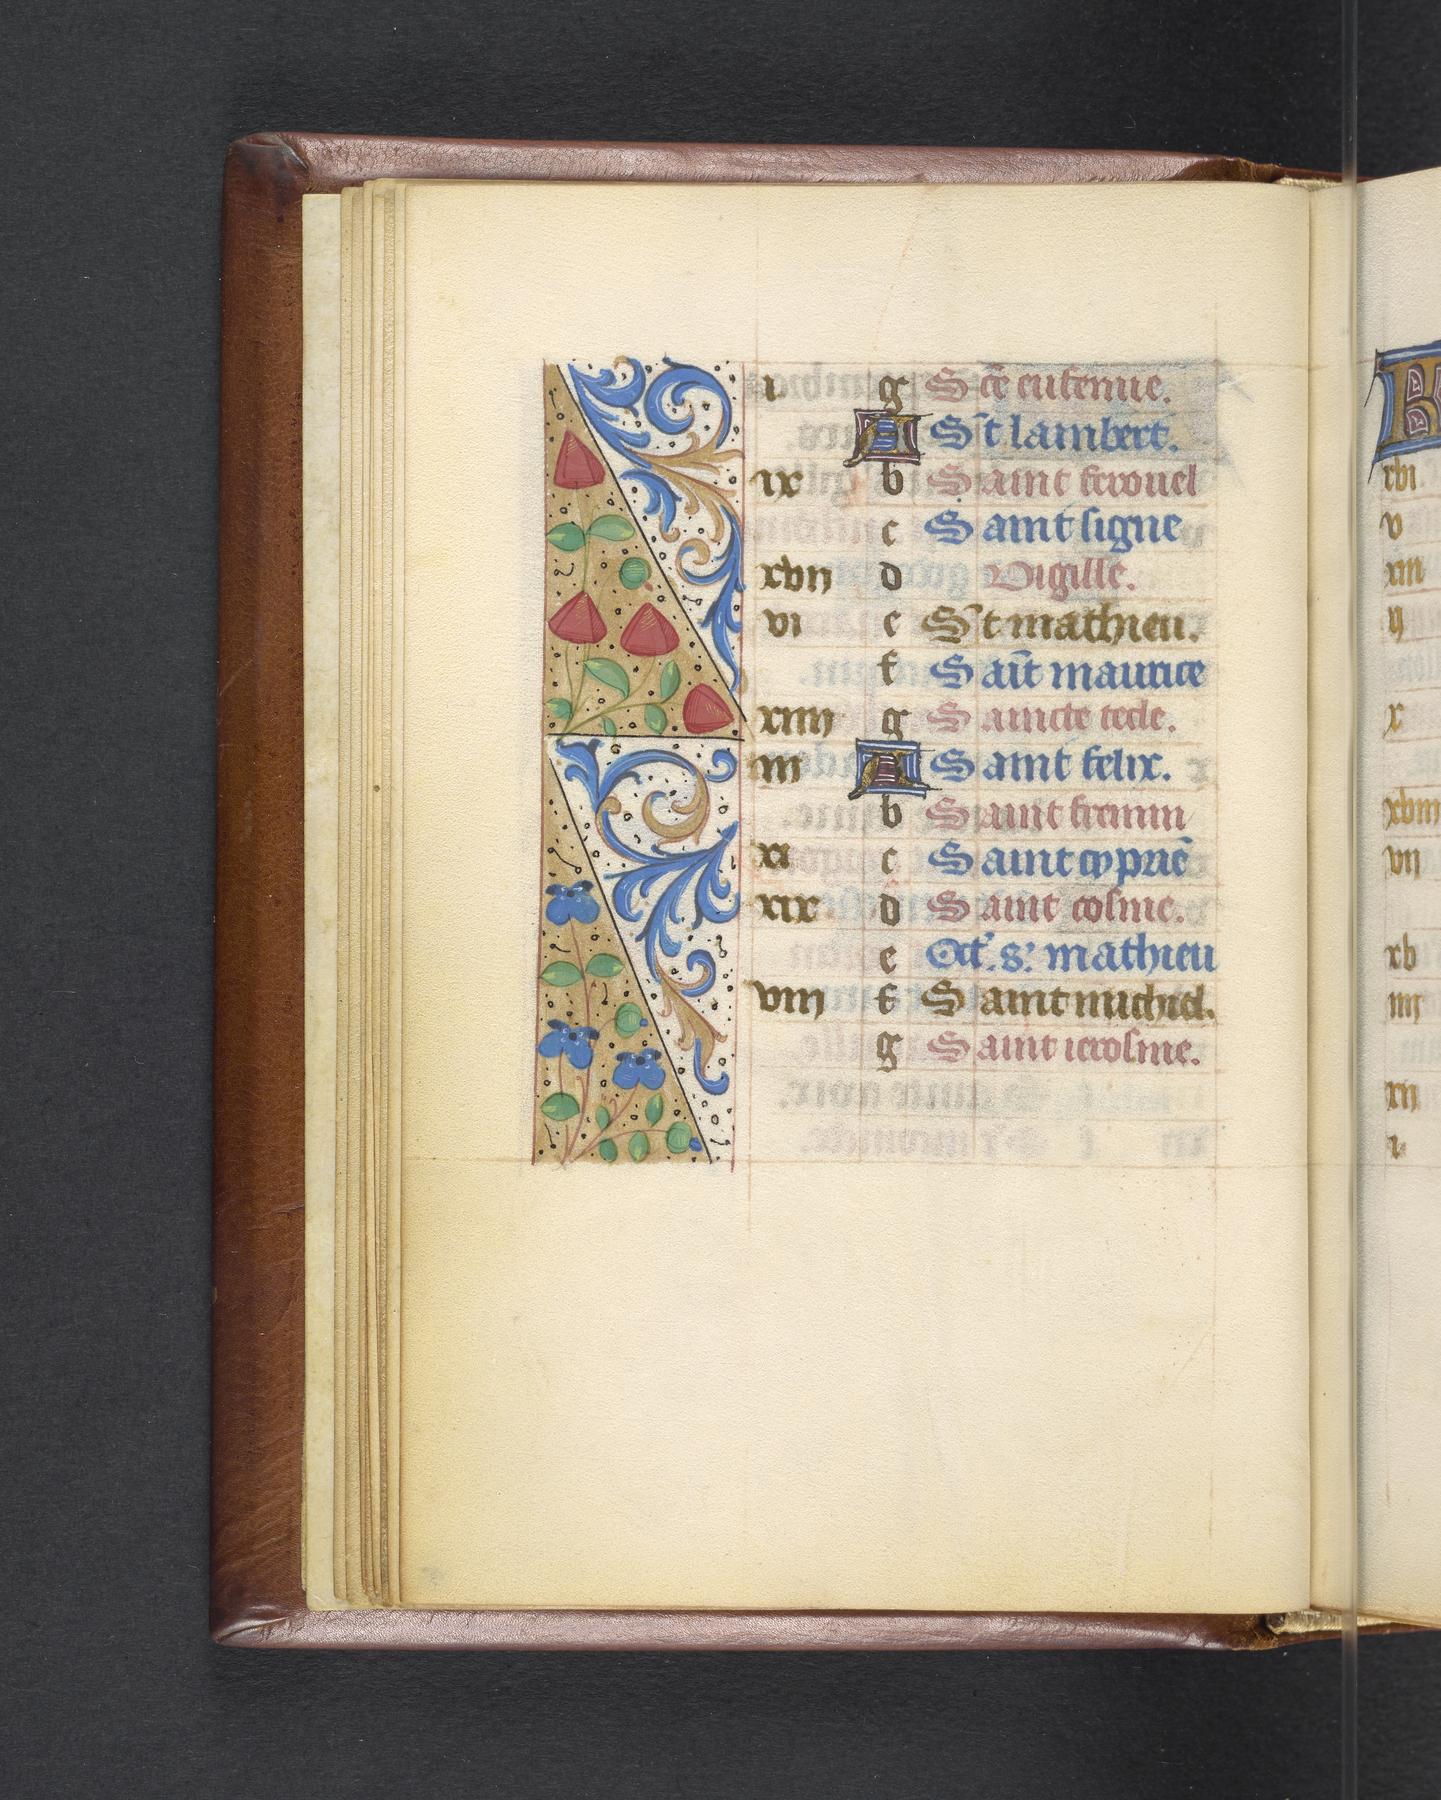 i. g Scē eufemie.
A St lambert.
ix b Saint ferouel
c Saint signe
xvii d Vigille.
vi e St mathieu.
f Sait̄ maurice
xiiii g Saincte tecle.
iii A Saint felix.
b Saint fremin
xi c Saint cypriē
xix d Saint cosme.
e Oct'. s'. mathieu
viii f Saint michiel.
g Saint ierosme.
xvi
v
xiii
ii
x
xviii
vii
xv
iiii
xii
i.